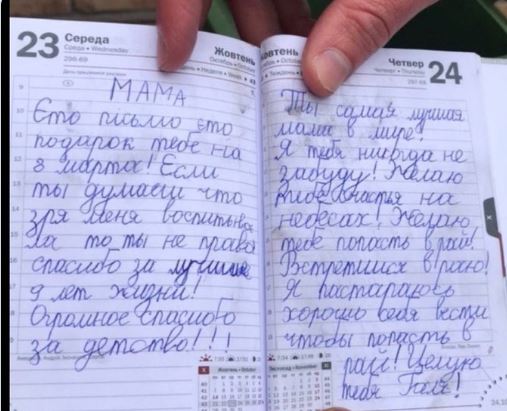 23 Середа
Среда • Wednesday
296-69
Жовтень
Октябрь • October
МАМА
Єто письмо єто
подарок тебе на
8 марта! Если
ты думаеш что
зря меня воспитыва
ла то ты не права
спасибо за лучшие
9 лет жизни!
Огромное спасибо
за детство!!!
Жовтень
Четвер 24
Четверг • Thursday
297-68
Ты самая лучшая
мама в мире!
Я тебя никогда не
забуду! Желаю
тебе счастья на
небесах! Желаю
тебе попасть в рай!
Встретимся в раю!
Я пастараюсь
хорошо себя вести
чтобы попасть в
рай! Целую
тебя Галя!
24.10